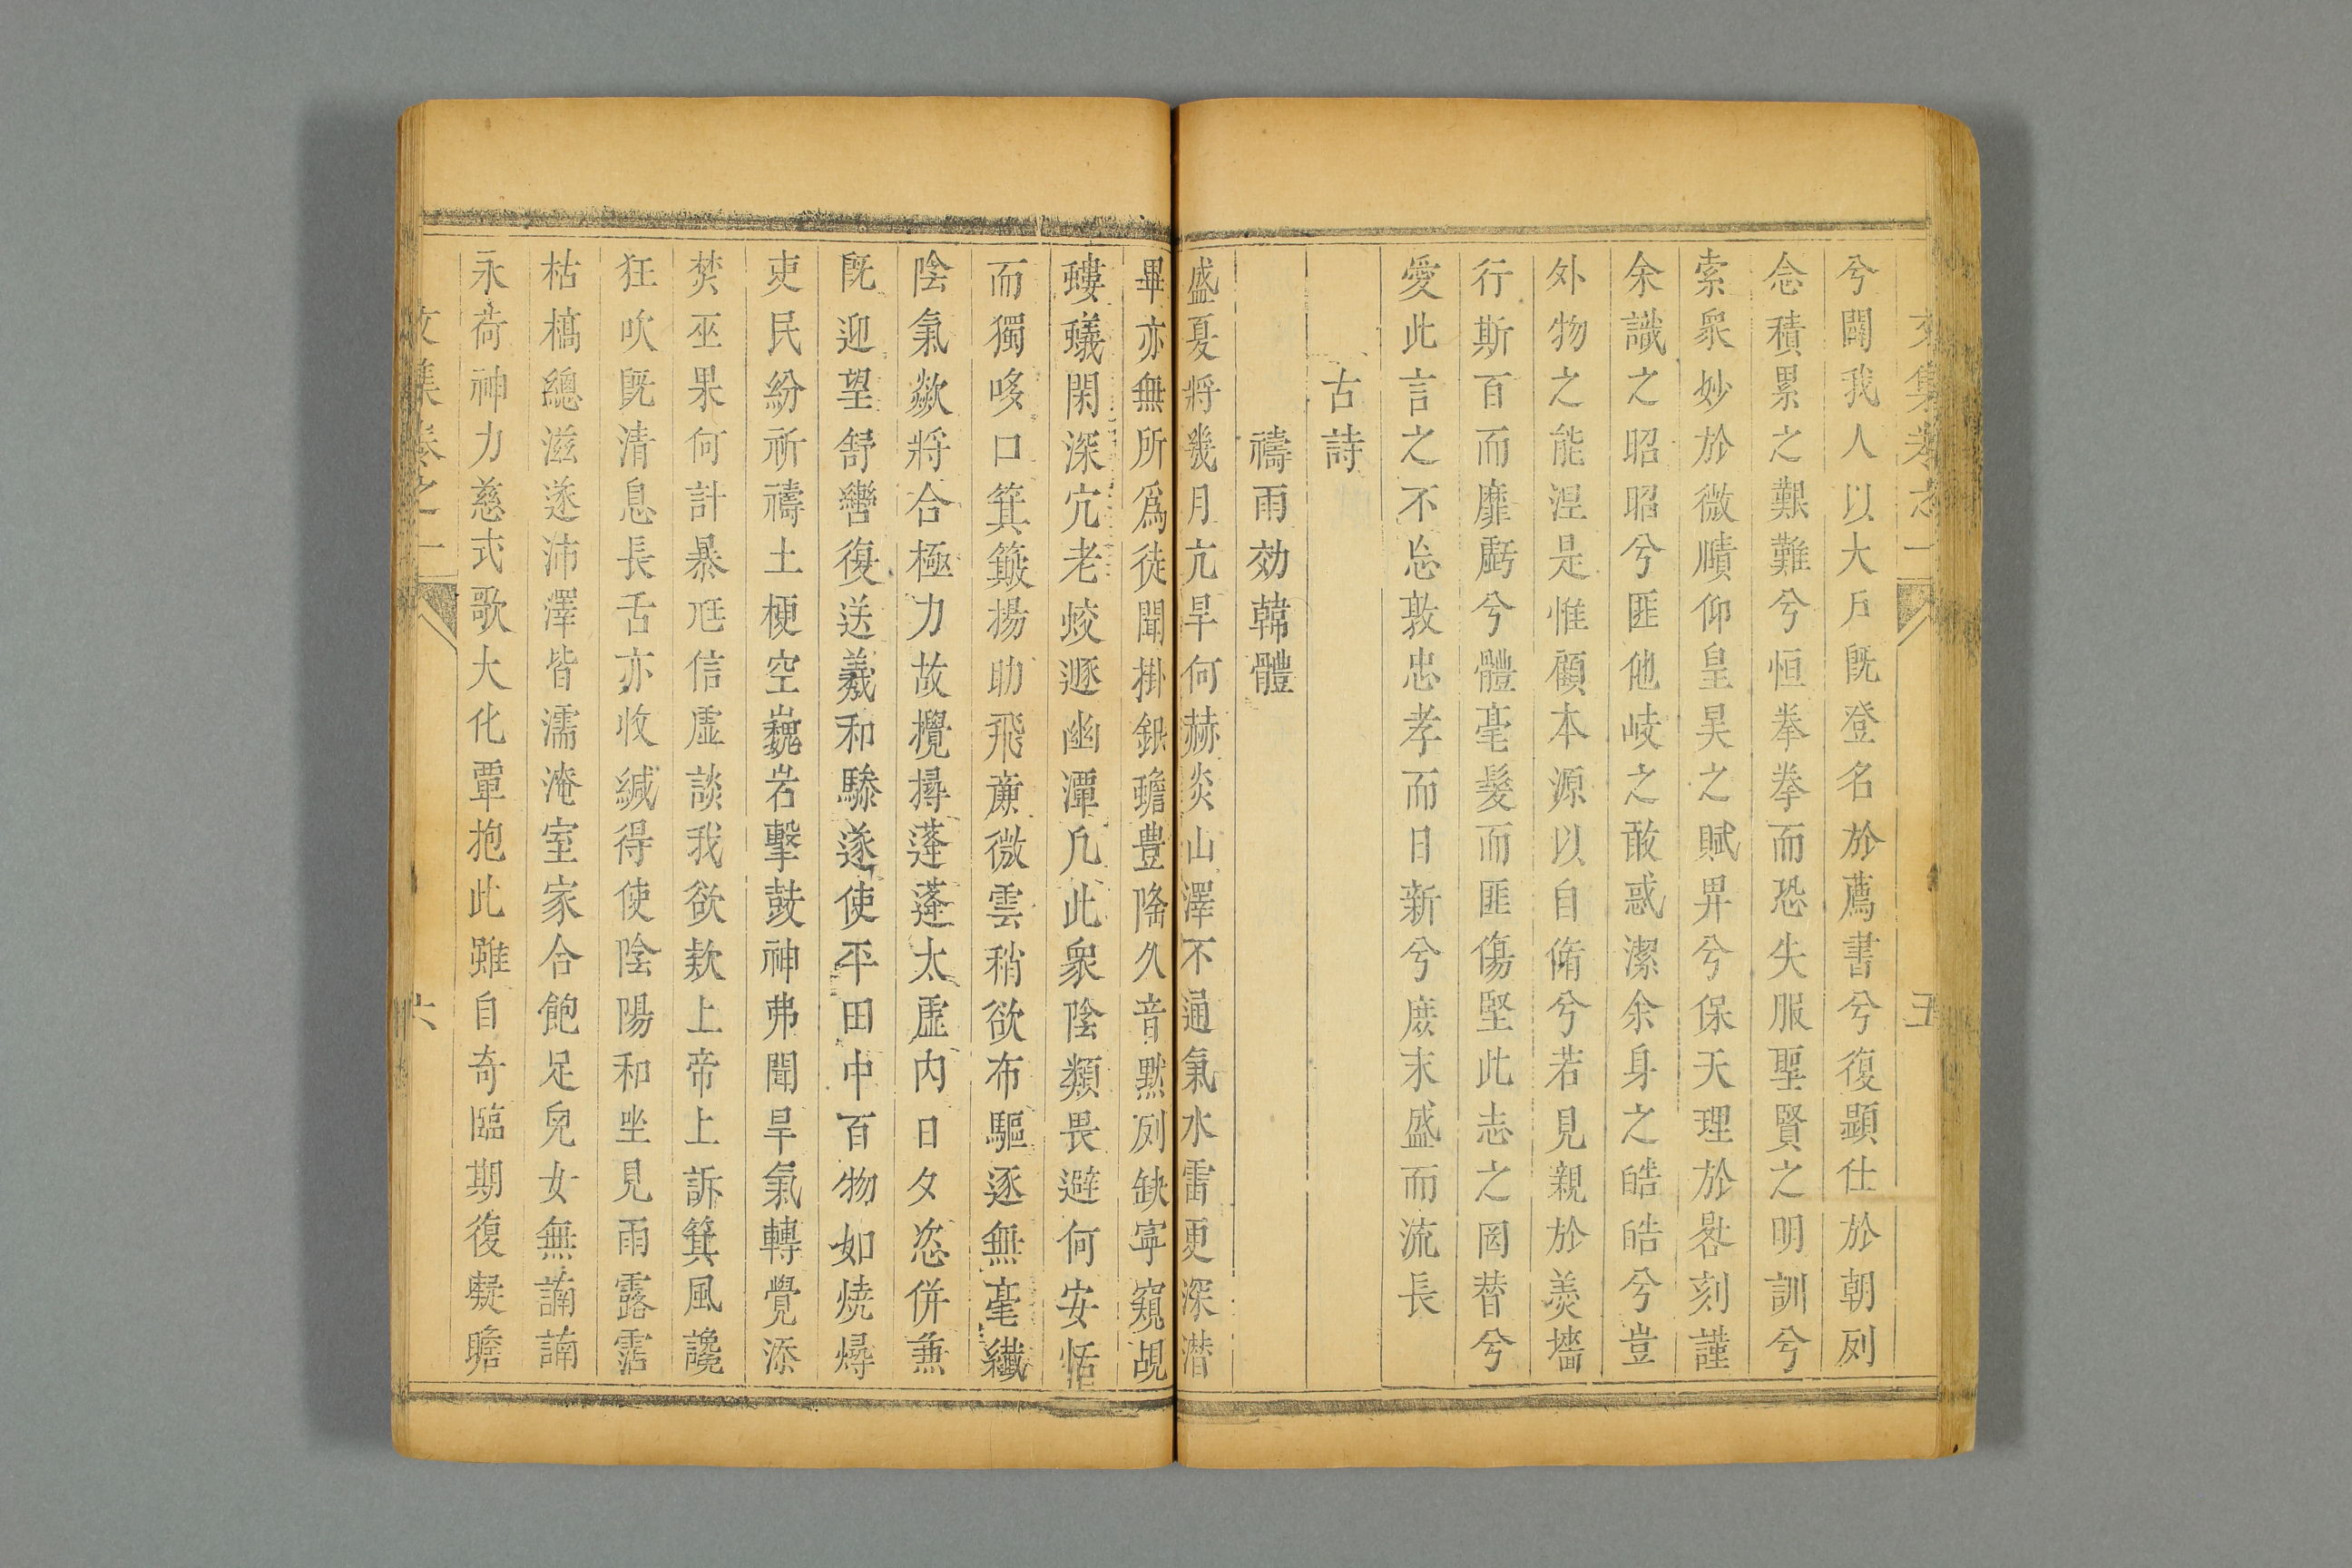 文集卷之一 五
兮闢我人以大戶既登名於薦書兮復顕仕於朝列
念積累之艱難兮恒拳拳而恐失服聖賢之明訓兮
索衆妙於微賾仰皇昊之賦畀兮保天理於晷刻謹
余識之昭昭兮匪他岐之敢惑潔余身之皓皓兮豈
外物之能涅是惟顧本源以自脩兮若見親於羮墻
行斯百而靡虧兮體毫髮而匪傷堅此志之罔替兮
愛此言之不忘敦忠孝而日新兮庶末盛而流長
古詩
禱雨効韓體
盛夏將幾月亢旱何赫炎山澤不通氣水雷更深潛
畢亦無所爲徒聞掛銀蟾豊隆久音黙列缺寜窺覘
螻蟻閑深宂老蛟遯幽潭凢此衆陰類畏避何安恬
而獨哆口箕簸揚助飛亷微雲稍欲布驅逐無毫纎
陰氣歘將合極力故攪撏蓬蓬太虛内日夕恣併兼
既迎望舒轡復送羲和驂遂使平田中百物如焼燖
吏民紛祈禱土梗空巍岩擊鼓神弗聞旱氣轉覺添
焚巫果何計暴尫信虛談我欲欵上帝上訴箕風讒
狂吹既清息長舌亦收緘得使陰陽和坐見雨露霑
枯槁總滋遂沛澤皆濡淹室家合飽足兒女無諵諵
永荷神力慈式歌大化覃抱此雖自奇臨期復凝瞻
文集卷之一 六